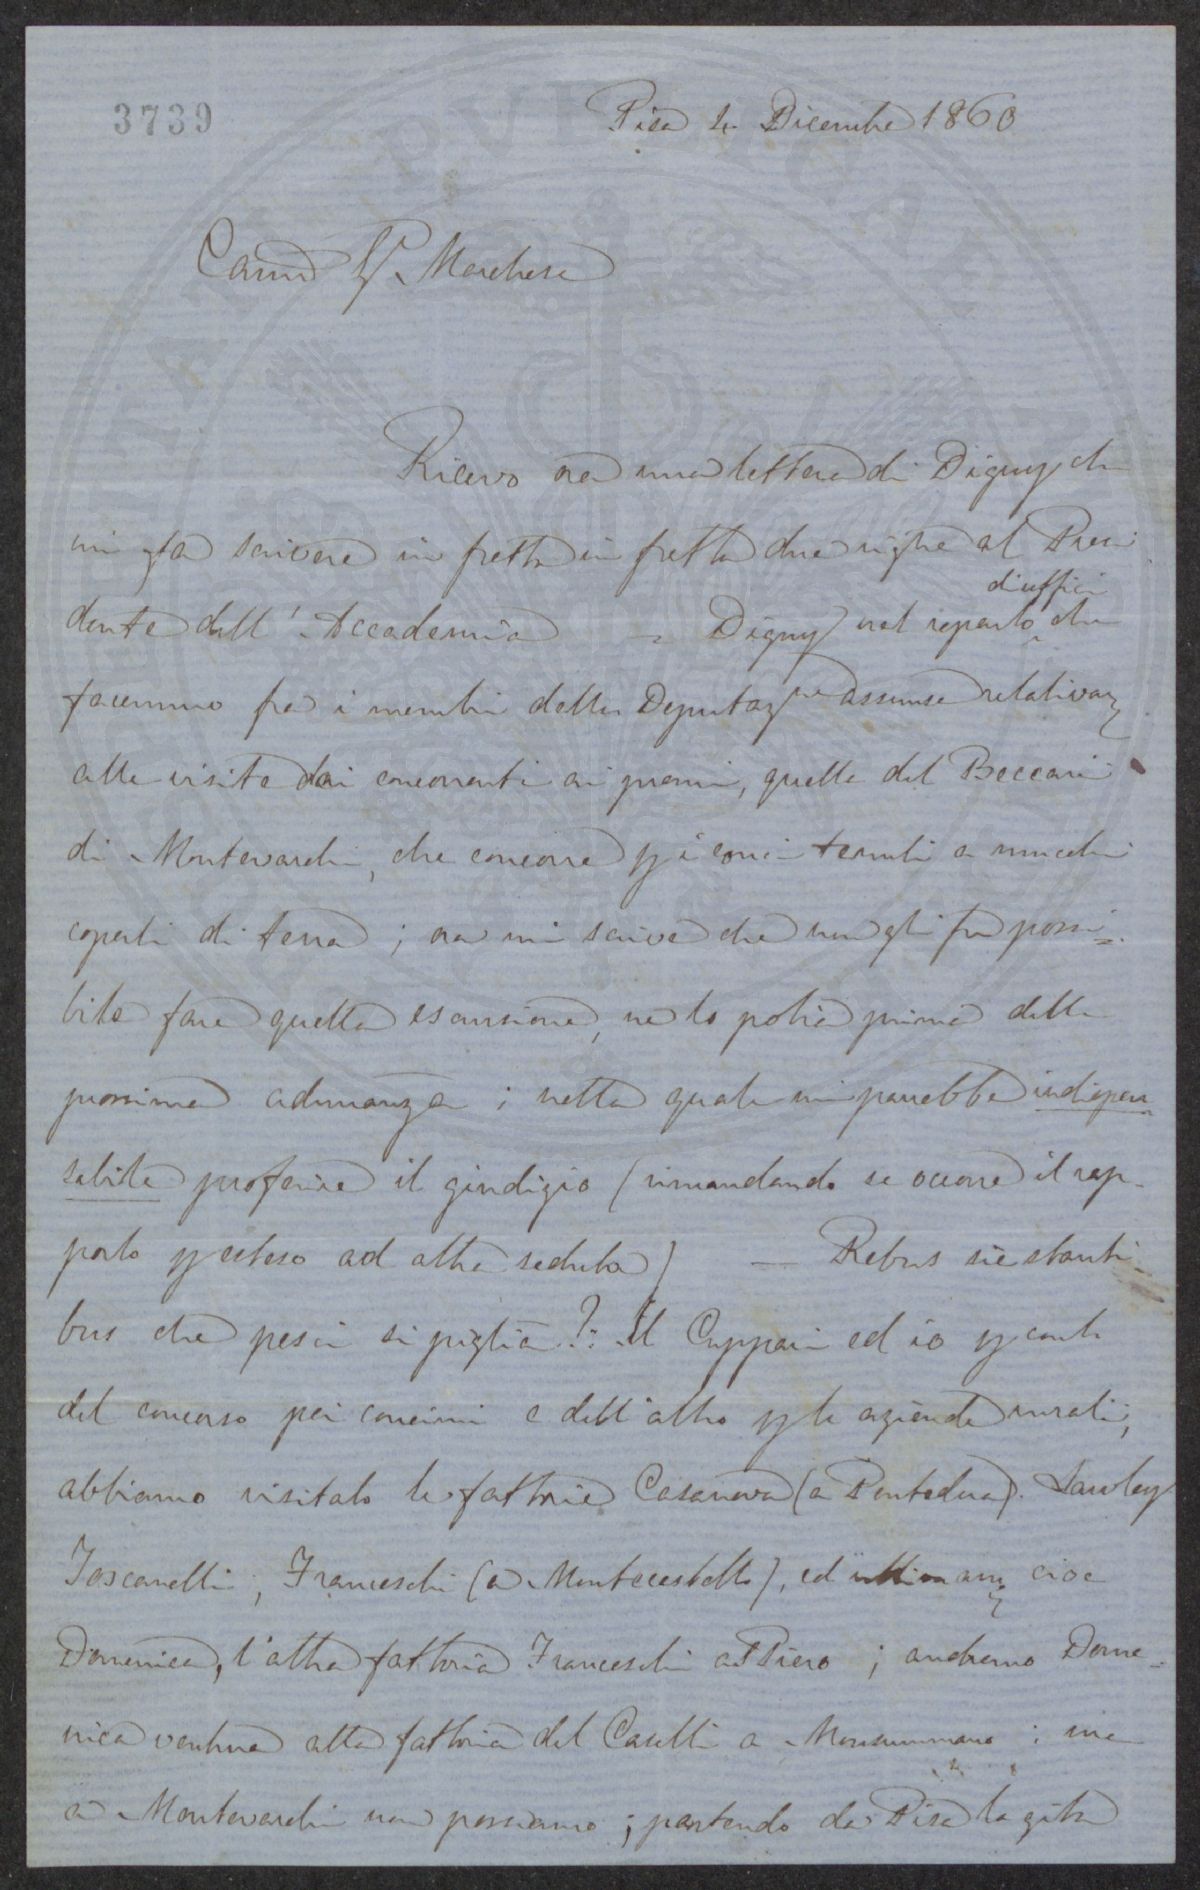 3739
Pisa 4 Dicembre 1860
Carmo Sr Marchese
Ricevo ora una lettera di Digny che
mi fa scrivere in fretta in fretta due righe al Presi
dente dell'Accademia – Digny nel reparto d'uffici che
facemmo fra i membri della Deputazne assunse relativam
alle visite dei concorrenti ai premi, quella del Beccari
di Montevarchi, che concorre p i conci tenuti a mucchi
coperti di terra; ora mi scrive che non gli fu possi=
bile fare quella escursione, ne lo potrà prima della
prossima adunanza; nella quale mi parrebbe indispen
sabile proferire il giudizio (rimandando se occorre il rap-
porto p esteso ad altra seduta) — Rebus sic stanti-
bus che pesci si piglia?: Il Cuppari ed io p conto
del concorso pei concimi e dell'altro p le aziende rurali,
abbiamo visitato le fattorie Casanova (a Pontedera). Lawley
Toscanelli, Franceschi (a Montecastello), ed ultimam cioè
Domenica, l'altra fattoria Franceschi a S Piero; andremo Dome-
nica ventura alla fattoria del Caselli a Monsummano; ma
a Montevarchi non possiamo; partendo da Pisa la gita